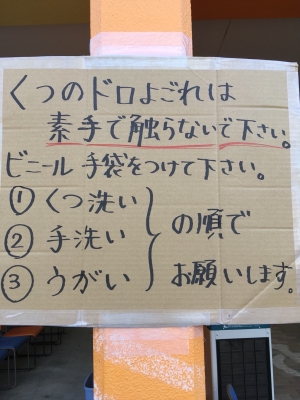 くつのドロよごれは
素手で触らないで下さい。
ビニール手袋をつけて下さい。
① くつ洗い
② 手洗い
③ うがい
の順で
お願いします。